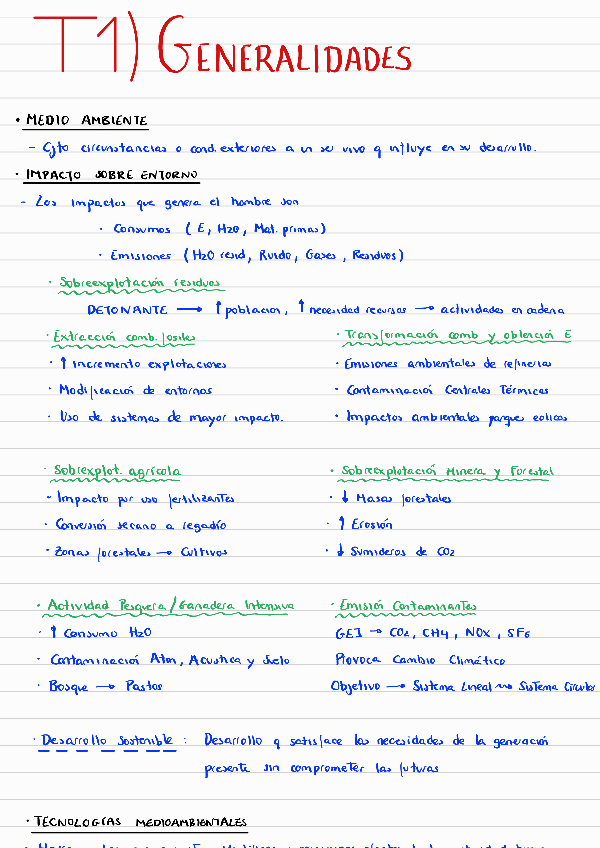 T1) GENERALIDADES
· MEDIO AMBIENTE
- Cjto circunstancias o cond. exteriores a un ser vivo q influye en su desarrollo.
· IMPACTO SOBRE ENTORNO
- Los impactos que genera el hombre son
· Consumos (E, H2O, Mat. primas)
· Emisiones (H2O resid, Ruido, Gases, Residuos)
· Sobreexplotación residuos
DETONANTE → ↑ poblacion, ↑ necesidad recursos → actividades en cadena
· Extracción comb. fosiles
· ↑ Incremento explotaciones
· Modificación de entornos
· Uso de sistemas de mayor impacto.
· Transformación comb y obtención E
· Emisiones ambientales de refinerias
· Contaminación Centrales Térmicas
· Impactos ambientales parques eolicos
· Sobrexplot. agrícola
- Impacto por uso fertilizantes
· Conversión secano a regadío
· Zonas forestales → Cultivos
· Sobreexplotación Minera y Forestal
· ↓ Masas forestales
· ↑ Erosión
· ↓ Sumideros de CO2
· Actividad Pesquera / Ganadera Intensiva
· ↑ Consumo H2O
· Contaminación Atm, Acustica y Suelo
· Bosque → Pastos
· Emisión Contaminantes
GEI → CO2, CH4, NOx, SF6
Provoca Cambio Climático
Objetivo → Sistema Lineal ⇝ Sistema Circular
· Desarrollo Sostenible : Desarrollo q satisface las necesidades de la generación
presente sin comprometer las futuras
· TECNOLOGÍAS MEDIOAMBIENTALES